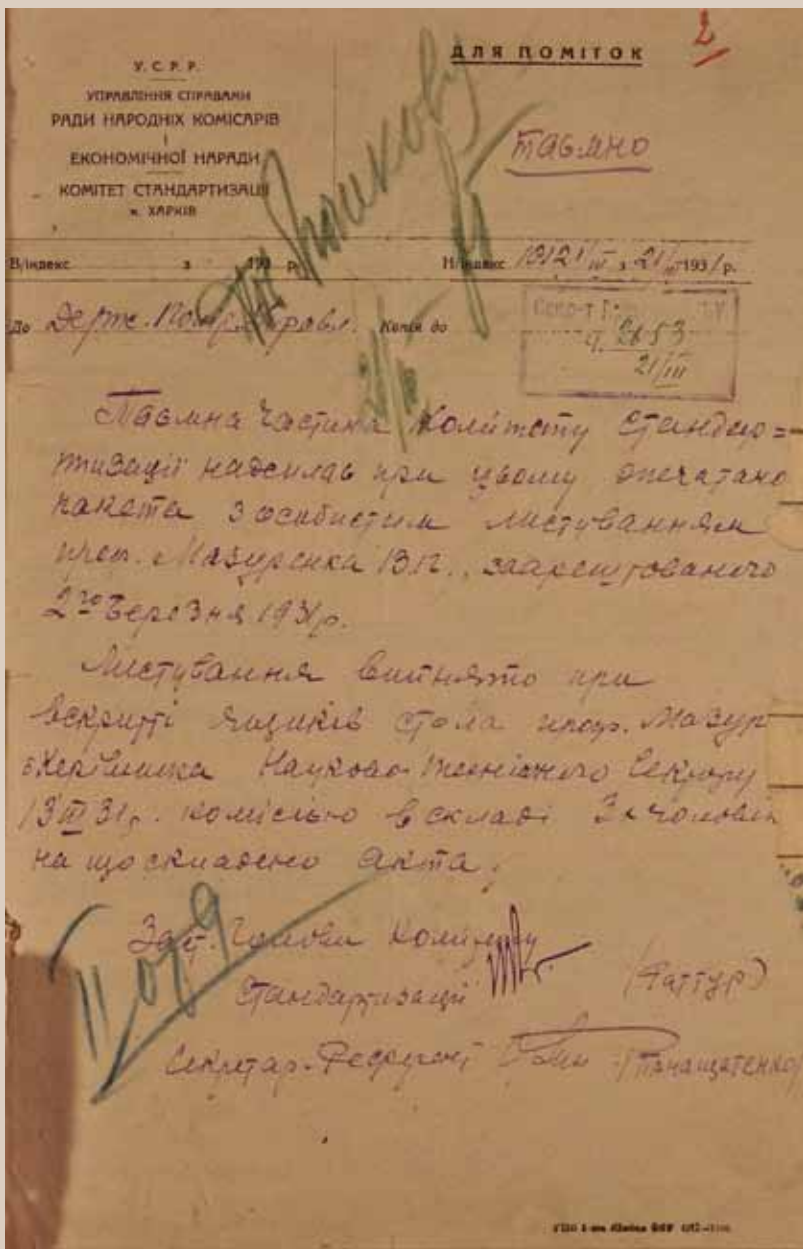 У. С. Р. Р.
УПРАВЛІННЯ СПРАВАМИ
РАДИ НАРОДНІХ КОМІСАРІВ
І
ЕКОНОМІЧНОЇ НАРАДИ
КОМІТЕТ СТАНДАРТИЗАЦІЇ
м. ХАРКІВ
ДЛЯ ПОМІТОК
2
Таємно
В/індекс з 193 р.
Н/індекс з 21/III 1931 р.
До Держ. Копія до
ч. 2653
21/III
Таємна Частина Комітету Стандар=
тизації надсилає при цьому опечатано
пакета з особистим листуванням
проф. Мазуренка В.П., заарештованого
2го Березня 1931р.
Листування вийнято при
вскритті ящиків стола проф. Мазур
Керівника Науково-технічного Сектору
13/III 31р. комісією в складі 3х чоловік
на що складено акта.
Заст. Голови Комітету
Стандартизації
Секретар-Референт
II